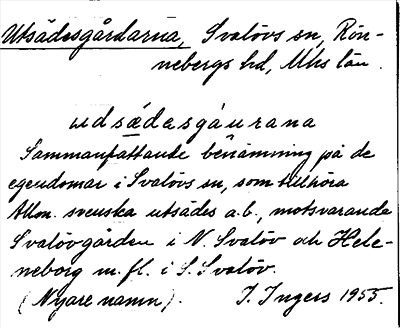 Utsädesgårdarna, Svalövs sn, Rön-
nebergs hd, Mhs län.
udsædesgáurana
Sammanfattande benämning på de
egendomar i Svalövs sn, som tillhöra
Allm. svenska utsädes a.b., motsvarande
Svalövgården i N. Svalöv och Hele-
neborg m. fl. i S. Svalöv.
(Nyare namn). I. Ingers 1955.